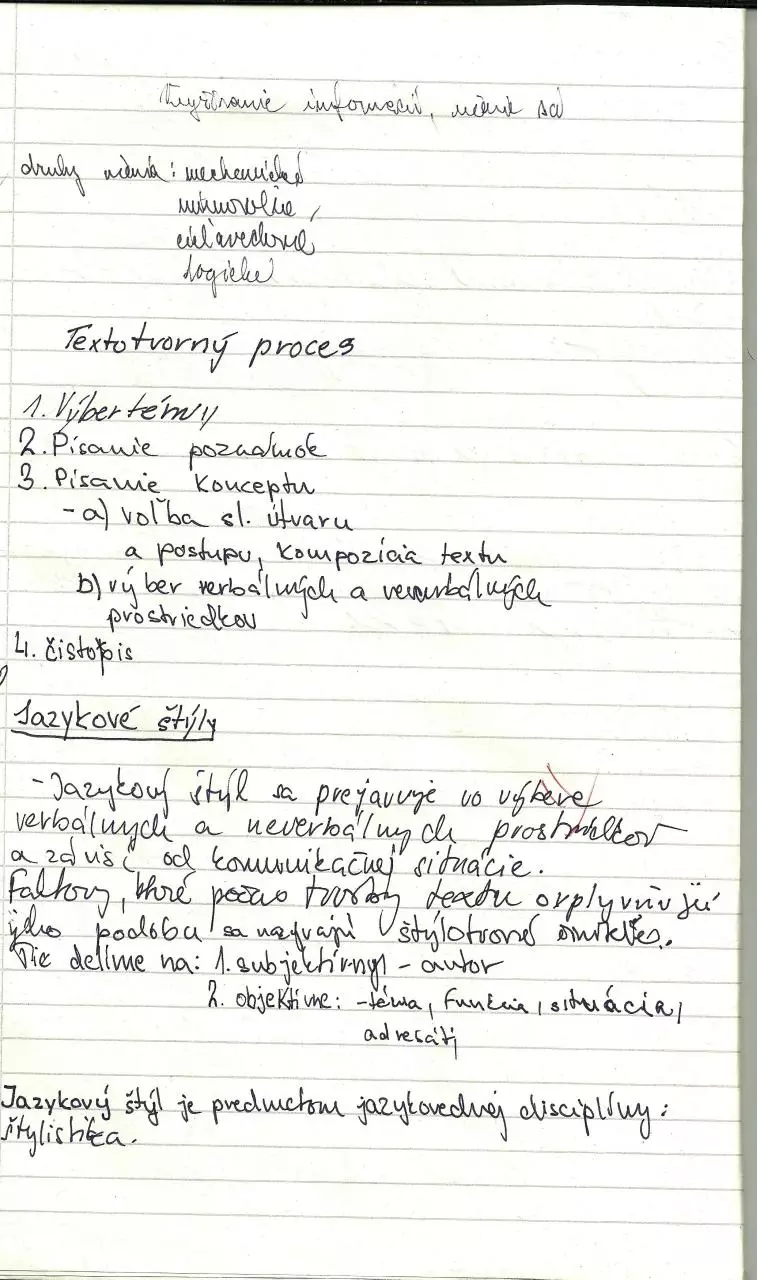 informácií, učenie sa
druhy učenia: mechanické
mimovoľné,
cieľavedomé
logické
Textotvorný proces
1. Výber témy
2. Písanie poznámok
3. Písanie konceptu
-a) voľba sl. útvaru
a postupu, kompozícia textu
b) výber verbálnych a neverbálnych
prostriedkov
4. čistopis
Jazykové štýly
-Jazykový štýl sa prejavuje vo výbere
verbálnych a neverbálnych prostriedkov
a závisí od komunikačnej situácie.
Faktory, ktoré počas tvorby textu ovplyvňujú
jeho podobu sa nazývajú štýlotvorné
Tie delíme na: 1. subjektívny - autor
2. objektívne: -téma, funkcia, situácia,
adresáti
Jazykový štýl je predmetom jazykovednej disciplíny:
štylistika.